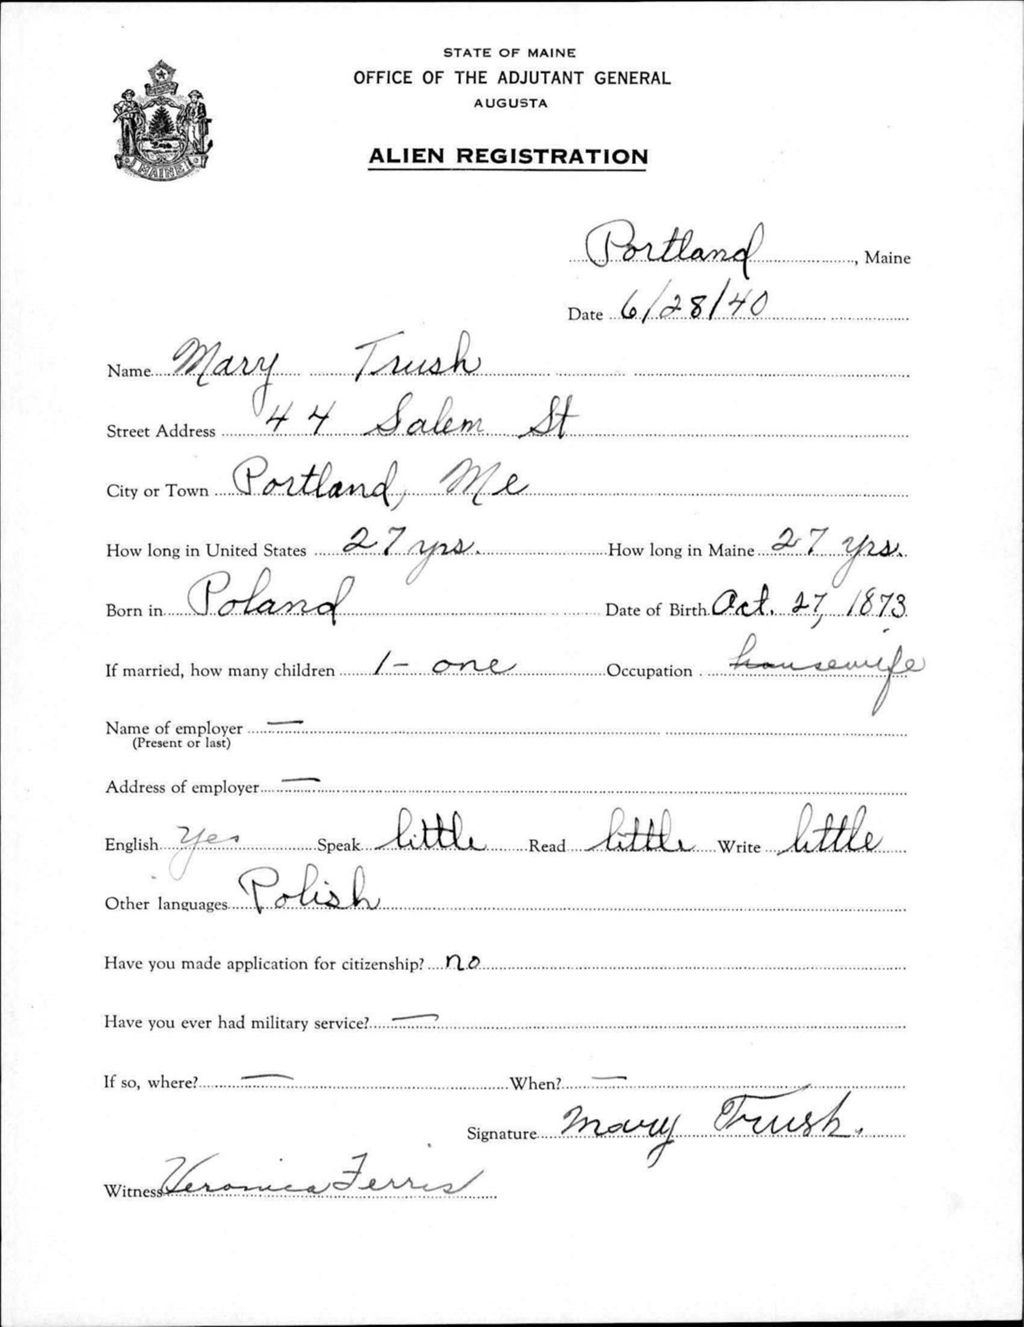 STATE OF MAINE
OFFICE OF THE ADJUTANT GENERAL
AUGUSTA
ALIEN REGISTRATION
MAINE
Portland, Maine
Date 6/28/40
Name Mary Trush
Street Address 44 Salem St
City or Town Portland, Me
How long in United States 27 yrs. How long in Maine 27 yrs.
Born in Poland Date of Birth Oct. 27, 1873
If married, how many children 1 - one Occupation housewife
Name of employer —
(Present or last)
Address of employer —
English Yes Speak little Read little Write little
Other languages Polish
Have you made application for citizenship? no
Have you ever had military service? —
If so, where? — When? —
Signature Mary Trush.
Witness Veronica Ferris